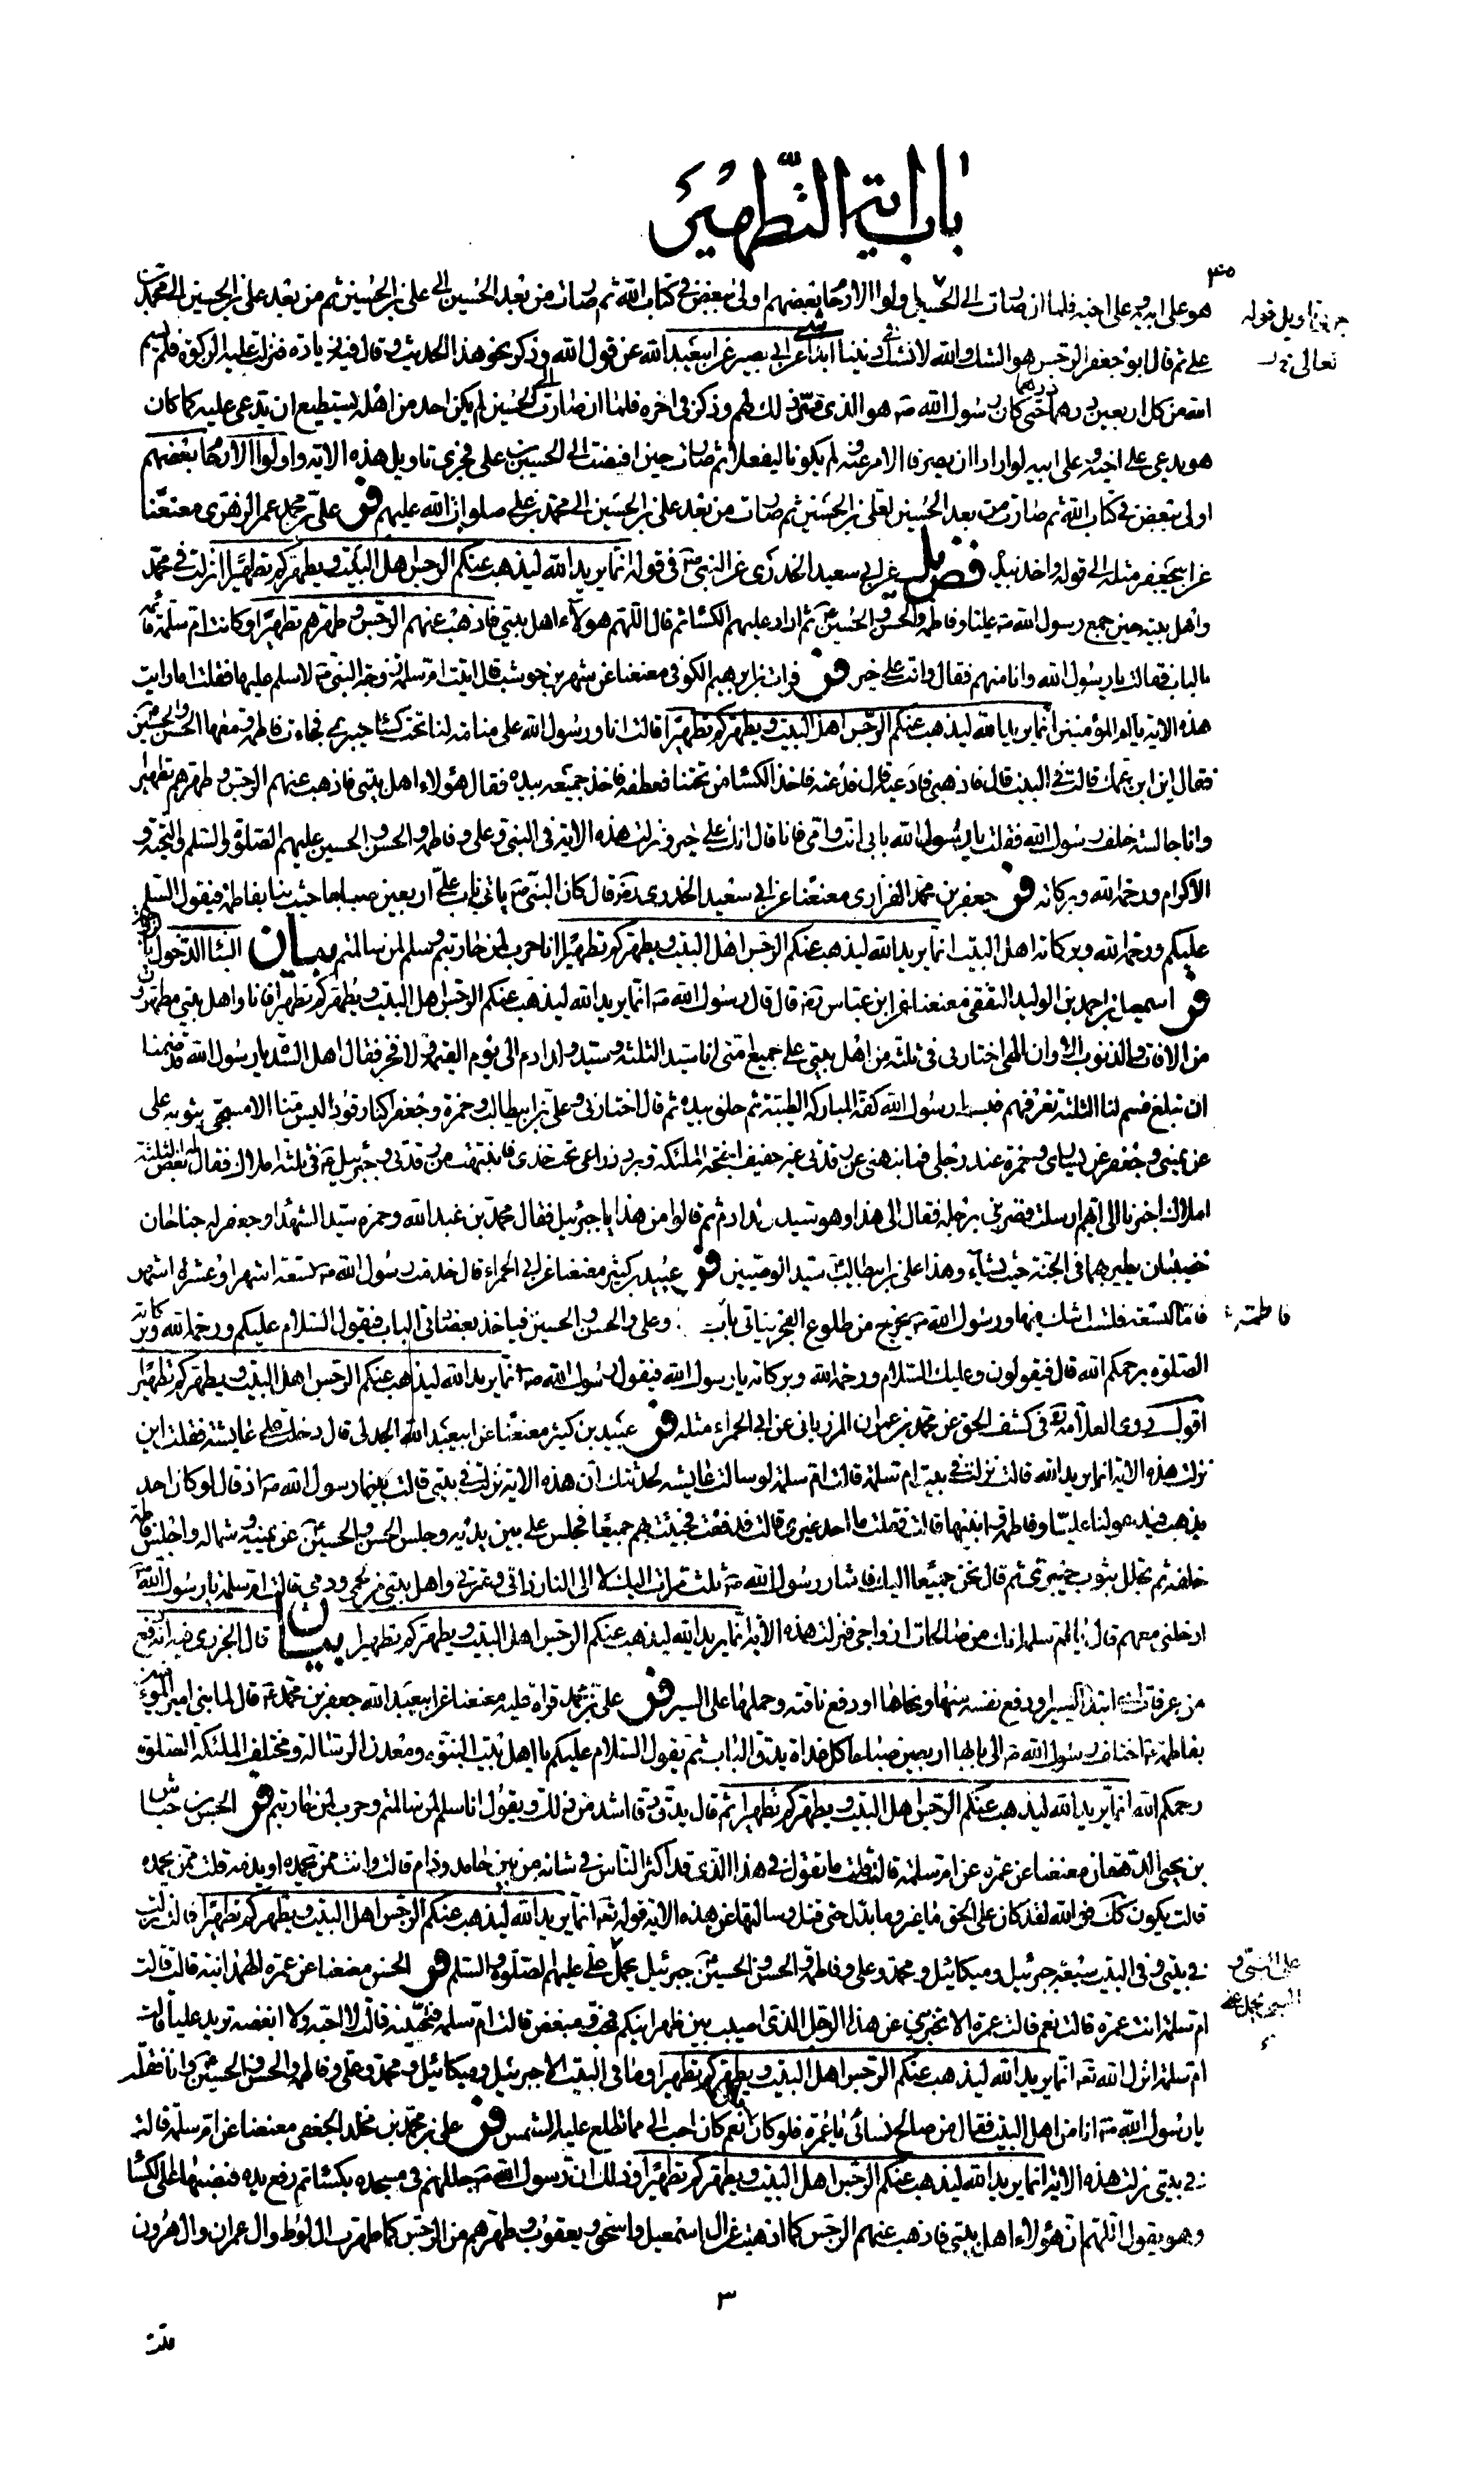 باب اية التطهير
هو على ابيه و على اخيه فلما ان صارت الى الحسين واولوا الارحام بعضهم اولى ببعض في كتاب الله ثم صارت من بعد الحسين الى علي بن الحسين ثم من بعد علي بن الحسين الى محمد بن
جرى تاويل قوله تعالى
علي ثم قال ابو جعفر الرجس هو الشك والله لا نشك في ديننا ابدا عن ابي بصير عن ابيعبد الله عن قول الله وذكر نحو هذا الحديث وقال فيه زيادة فنزلت عليه الزكوة فلم يسم
الله من كل اربعين درهما درهما حتى كان رسول الله ص هو الذي فسر ذلك لهم وذكر في اخره فلما ان صارت الى الحسين لم يكن احد من اهله يستطيع ان يدعي عليه كما كان
هو يدعي على اخيه وعلى ابيه لو ارادا ان يصرفا الامر عنه ولم يكونا ليفعلا ثم صارت حين افضت الى الحسين بن علي فجرى تاويل هذه الاية واولوا الارحام بعضهم
اولى ببعض في كتاب الله ثم صارت من بعد الحسين لعلي بن الحسين ثم صارت من بعد علي بن الحسين الى محمد بن علي صلوات الله عليهم فر علي بن محمد بن عمر الزهري معنعنا
عن ابيجعفر مثله الى قوله واخذ بيد فضيل عن ابي سعيد الخدري عن النبي ص في قوله انما يريد الله ليذهب عنكم الرجس اهل البيت ويطهركم تطهيرا نزلت في محمد
واهل بيته حين جمع رسول الله ص عليا وفاطمة والحسن والحسين ثم ادار عليهم الكساء ثم قال اللهم هولاء اهل بيتي فاذهب عنهم الرجس وطهرهم تطهيرا وكانت ام سلمة قائمة
بالباب فقالت يا رسول الله وانا منهم فقال وانت على خير فر فرات بن ابرهيم الكوفي معنعنا عن شهر بن حوشب قال اتيت ام سلمة زوجة النبي ص لاسلم عليها فقلت اما رايت
هذه الاية يا ام المؤمنين انما يريد الله ليذهب عنكم الرجس اهل البيت ويطهركم تطهيرا قالت انا ورسول الله على منامة لنا تحت كساء خيبري فجاءت فاطمة ومعها الحسن والحسين
فقال اين ابن عمك قالت في البيت قال فاذهبي فادعيه قال فدعته فاخذ الكساء من تحتنا فعطفه فاخذ جميعه بيده فقال هؤلاء اهل بيتي فاذهب عنهم الرجس وطهرهم تطهيرا
وانا جالسة خلف رسول الله فقلت يا رسول الله بابي انت وامي فانا قال انك على خير ونزلت هذه الاية في النبي وعلي وفاطمة والحسن والحسين عليهم الصلوة والسلم والتحية و
الاكرام ورحمة الله وبركاته فر جعفر بن محمد الفزاري معنعنا عن ابي سعيد الخدري رض قال كان النبي ص ياتي باب علي اربعين صباحا حيث بنا بفاطمة فيقول السلم
عليكم ورحمة الله وبركاته اهل البيت انما يريد الله ليذهب عنكم الرجس اهل البيت ويطهركم تطهيرا انا حرب لمن حاربتم وسلم لمن سالمتم بيان البناء الدخول
فر اسمعيل بن احمد بن الوليد الثقفي معنعنا عن ابن عباس رض قال قال رسول الله ص انما يريد الله ليذهب عنكم الرجس اهل البيت ويطهركم تطهيرا فانا واهل بيتي مطهرون
من الافات والذنوب الا وان الهي اختارني في ثلثة من اهل بيتي على جميع امتي انا سيد الثلثة وسيد ولد ادم الى يوم القيمة ولا فخر فقال اهل السدة يا رسول الله قد ضمنا
ان نبلغ فسم لنا الثلثة نعرفهم فبسط رسول الله كفه المباركة الطيبة ثم حلق بيده ثم قال اختارني وعلي بن ابيطالب وحمزة وجعفر كنا رقودا ليس منا الا مسجى بثوبه علي
عن يميني وجعفر عن يساري وحمزة عند رجلي فما نبهني عن رقدتي غير حفيف اجنحة الملئكة وبرد ذراعي تحت خدي فانتبهت من رقدتي وجبرئيل ع في ثلثة املاك فقال له بعض الثلثة
املاك اخبرنا الى ايهم ارسلت فضربني برجله فقال الى هذا وهو سيد ولد ادم ثم قالوا من هذا يا جبرئيل فقال محمد بن عبد الله وحمزه سيد الشهداء وجعفر له جناحان
خضيبان يطير بهما في الجنة حيث يشاء وهذا علي بن ابيطالب سيد الوصيين فر عبيد بن كثير معنعنا عن ابي الحمراء قال خدمت رسول الله ص تسعة اشهر او عشرة اشهر
فاما التسعة فلست اشك فيها ورسول الله ص يخرج من طلوع الفجر فياتي باب وعلي والحسن والحسين فياخذ بعضادتي الباب فيقول السلام عليكم ورحمة الله وبركاته
فاطمة
الصلوة يرحمكم الله قال فيقولون وعليك السلام ورحمة الله وبركاته يا رسول الله فيقول رسول الله ص انما يريد الله ليذهب عنكم الرجس اهل البيت ويطهركم تطهيرا
اقول روى العلامة في كشف الحق عن محمد بن عمران المرزباني عن ابي الحمراء مثله فر عبيد بن كثير معنعنا عن ابيعبد الله الجدلي قال دخلت على عايشة فقلت اين
نزلت هذه الاية انما يريد الله قالت نزلت في بيت ام سلمة قالت ام سلمة لو سالت عايشة لحدثتك ان هذه الاية نزلت في بيتي قالت بينما رسول الله ص اذ قال لو كان احد
يذهب فيدعو لنا عليا وفاطمة وابنيها قالت فقلت ما احد غيري قالت فدفعت فجئت بهم جميعا فجلس علي بين يديه وجلس الحسن والحسين عن يمينه وشماله واجلس فاطمة
خلفه ثم تجلل بثوب خيبري ثم قال نحن جميعا اليك فاشار رسول الله ص ثلث مرات اليك لا الى النار ذاتي وعترتي واهل بيتي من لحمي ودمي قالت ام سلمة يا رسول الله
ادخلني معهم قال يا ام سلمة انك من صالحات ازواجي فنزلت هذه الاية انما يريد الله ليذهب عنكم الرجس اهل البيت ويطهركم تطهيرا بيان قال الجزري فيه انه دفع
من عرفات اي ابتدا السير ودفع نفسه منها ونحاها او دفع ناقته وحملها على السير فر علي بن محمد قراة عليه معنعنا عن ابيعبد الله جعفر بن محمد ع قال لما بنى امير المؤمنين
بفاطمة ع اختلف رسول الله ص الى بابها اربعين صباحا كل غداة يدق الباب ثم يقول السلام عليكم يا اهل بيت النبوة ومعدن الرسالة ومختلف الملئكة الصلوة
رحمكم الله انما يريد الله ليذهب عنكم الرجس اهل البيت ويطهركم تطهيرا ثم قال يدق دقا اشد من ذلك ويقول انا سلم لمن سالمتم وحرب لمن حاربتم فر الحسن بن حباش
بن يحيى الدهقان معنعنا عن عمرة عن ام سلمة قالت قلت ما تقولين في هذا الذي قد اكثر الناس في شانه من بين حامد وذام قالت وانت ممن يحمده او يذمه قلت ممن يحمده
قالت يكون كك فوالله لقد كان على الحق ما غير وما بدل حتى قتل وسالتها عن هذه الاية قوله تعه انما يريد الله ليذهب عنكم الرجس اهل البيت ويطهركم تطهيرا قالت نزلت
في بيتي وفي البيت سبعة جبرئيل وميكائيل ومحمد وعلي وفاطمة والحسن والحسين جبرئيل يملي على عليهم الصلوة والسلم فر الحسن معنعنا عن عمرة الهمدانية قالت قالت
ام سلمة انت عمرة قالت نعم قالت عمرة الا تخبريني عن هذا الرجل الذي اصيب بين ظهرانيكم فمحب ومبغض قالت ام سلمة فتحبينه قالت لا احبه ولا ابغضه تريد عليا قالت
ام سلمة انزل الله تعه انما يريد الله ليذهب عنكم الرجس اهل البيت ويطهركم تطهيرا وما في البيت الا جبرئيل وميكائيل ومحمد وعلي وفاطمة والحسن والحسين وانا فقلت
يا رسول الله ص انا من اهل البيت فقال من صالح نسائي يا عمرة فلو كان قال نعم كان احب الي مما تطلع عليه الشمس فر علي بن محمد بن مخلد الجعفي معنعنا عن ام سلمة قالت
في بيتي نزلت هذه الاية انما يريد الله ليذهب عنكم الرجس اهل البيت ويطهركم تطهيرا وذلك ان رسول الله ص جللهم في مسجده بكساء ثم رفع يده فنصبها على الكساء
وهو يقول اللهم ان هؤلاء اهل بيتي فاذهب عنهم الرجس كما اذهبت عن ال اسمعيل واسحق ويعقوب وطهرهم من الرجس كما طهرت ال لوط وال عمران وال هرون
٣